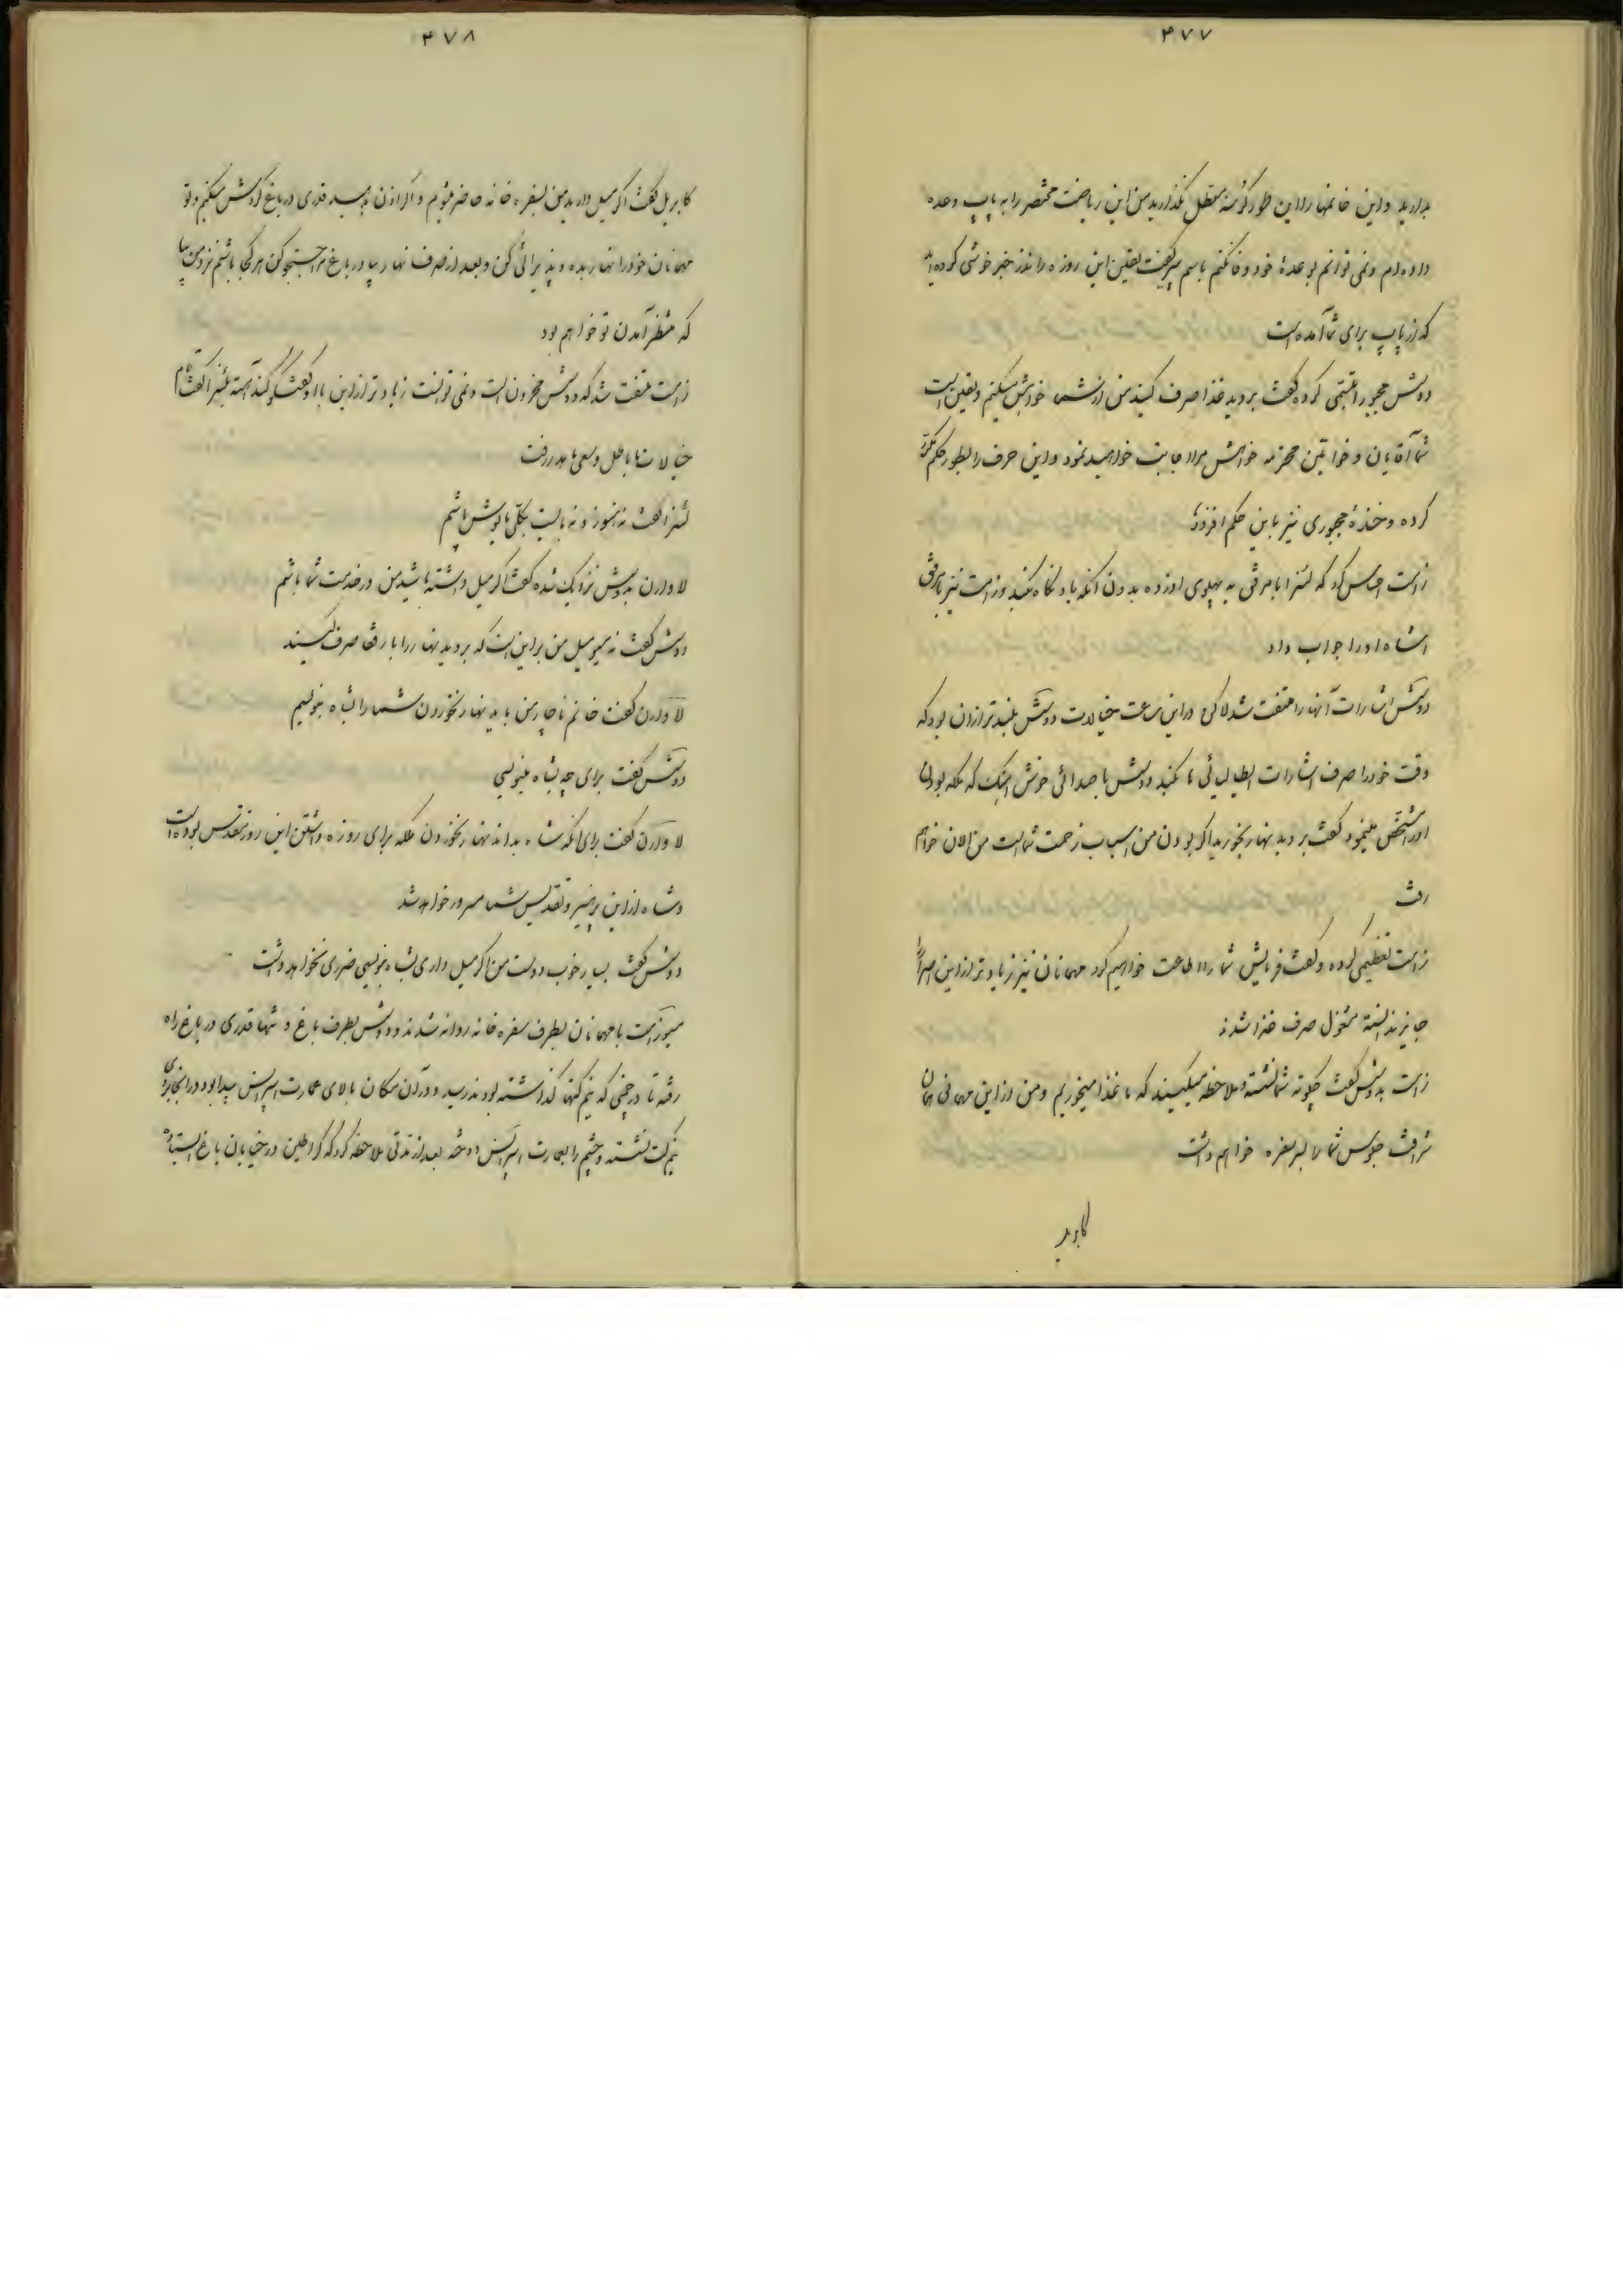 ۴۷۷
بدارید و این خانمها را این طور گرسنه معطل نگذارید من این ریاضت مختصر را به پاپ وعده
داده‌ام و نمی توانم بوعدهٔ خود وفا نکنم باسم پیر گفت یقین این روزه را نذر خبر خوشی کرده‌اید
که از پاپ برای شما آمده است
دوشس مجبورا تبسمی کرده گفت بروید غذا صرف کنید من از شما خواهش میکنم و یقین است
شما آقایان و خواتین محترمه خواهش مرا اجابت خواهید نمود و این حرف را بطور حکم
کرده و خندهٔ مجبوری نیز باین حکم افزود
زاست احساس کرد که لنزا با مرفق به پهلوی او زده بدون آنکه باو نگاه کند و زاست نیز با مرفق
اشاه او را جواب داد
دوشس اشارات آنها را ملتفت شد لاکن در این ساعت خیالات دوشس بلندتر از آن بود که
وقت خود را صرف اشارات ایطالیائی ها کند دوشس با صدائی خوش آهنگ که ملکه بودن
او را مشخص مینمود گفت بروید نهار بخورید اگر بودن من اسباب زحمت شماست من الان خواهم
رفت
زاست تعظیمی کرده و گفت فرمایش شما را اطاعت خواهیم کرد مهمانان نیز زیادتر از این اصرار
جایز ندانسته مشغول صرف غذا شدند
زاست بدوشس گفت چگونه شما نشسته و ملاحظه میکنید که ما غذا میخوریم و من از این مهمانی همان
شرافت جلوس شما را بر سر سفره خواهم داشت
کابریل
۴۷۸
کابریل گفت اگر میل دارید من بسفره خانه حاضر میشوم و اگر اذن بدهید قدری در باغ گردش میکنم و تو
مهمانان خود را نهار بده و پذیرائی کن و بعد از صرف نهار بیا در باغ مرا جستجو کن هر کجا باشم نزد من بیا
که منتظر آمدن تو خواهم بود
زاست ملتفت شد که دوشس محزون است و نمی توانست زیادتر از این با او گفتگو کند آهسته بلنزا گفت تمام
خیالات ما باطل و سعی ما هدر رفت
لنزا گفت نه هنوز و نه بایست بکلی مایوس باشیم
لاوارن بدوشس نزدیک شده گفت اگر میل داشته باشید من در خدمت شما باشم
دوشس گفت نه مسیو میل من بر این است که بروید نهار را با رفقا صرف کنید
لاوارن گفت خانم ناچار من باید نهار نخوردن شما را بشاه بنویسم
دوشس گفت برای چه بشاه بنویسی
لاوارن گفت برای آنکه شاه بداند نهار نخوردن ملکه برای روزه داشتن این روز مقدس بوده است
و شاه از این پرهیز و تقدیس شما مسرور خواهد شد
دوشس گفت بسیار خوب دوست من اگر میل داری بشاه بنویسی ضرری نخواهد داشت
مسیو زاست با مهمانان بطرف سفره خانه روانه شدند و دوشس بطرف باغ و تنها قدری در باغ راه
رفته تا در جائی که نیم کتها گذاشته بودند رسید و در آن مکان بالای عمارت اسپرانس پیدا بود در آنجا بروی
نیم کت نشسته و چشم را بعمارت اسپرانس دوخته بعد از مدتی ملاحظه کرد که گراطین در خیابان باغ ایستاده